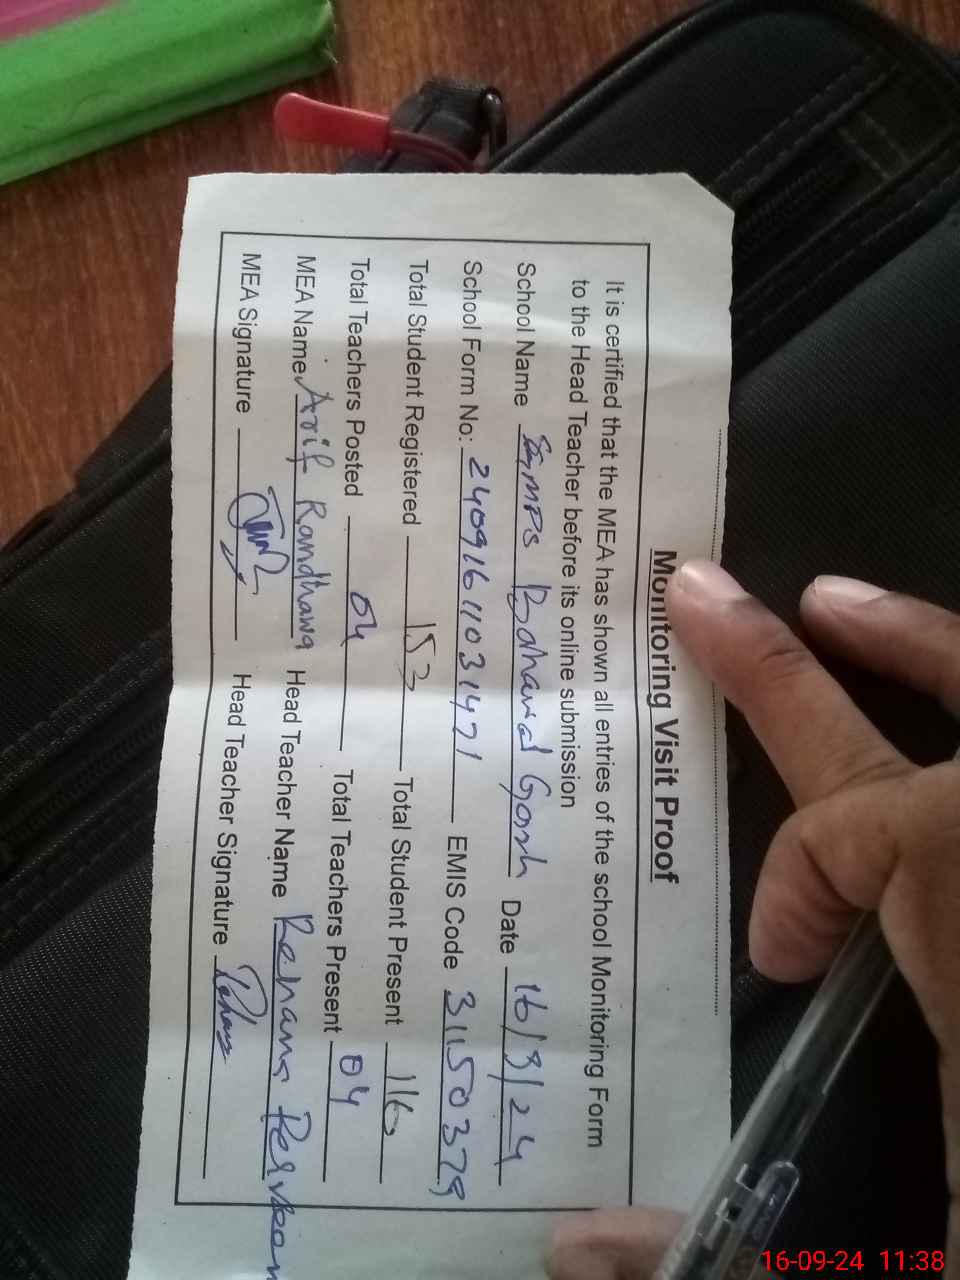 Monitoring Visit Proof
It is certified that the MEA has shown all entries of the school Monitoring Form
to the Head Teacher before its online submission
School Name GMPS Bahawal Garh Date 16/9/24
School Form No: 24091611031471 EMIS Code 31150379
Total Student Registered 153 Total Student Present 116
Total Teachers Posted 04 Total Teachers Present 04
MEA Name Arif Randhawa Head Teacher Name Rehana Perveen
MEA Signature Head Teacher Signature
16-09-24 11:38